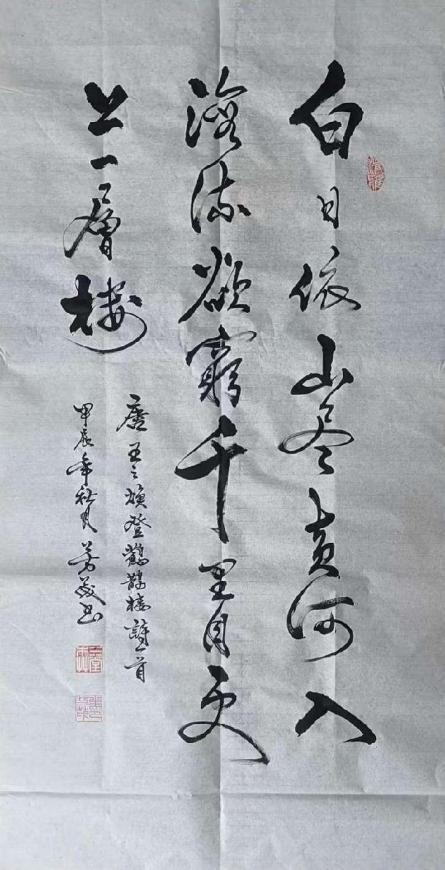 白日依山尽黄河入
海流欲窮千里目更
上一層楼
唐王之焕登鹳鹊楼詩一首
甲辰年秋月芳義书